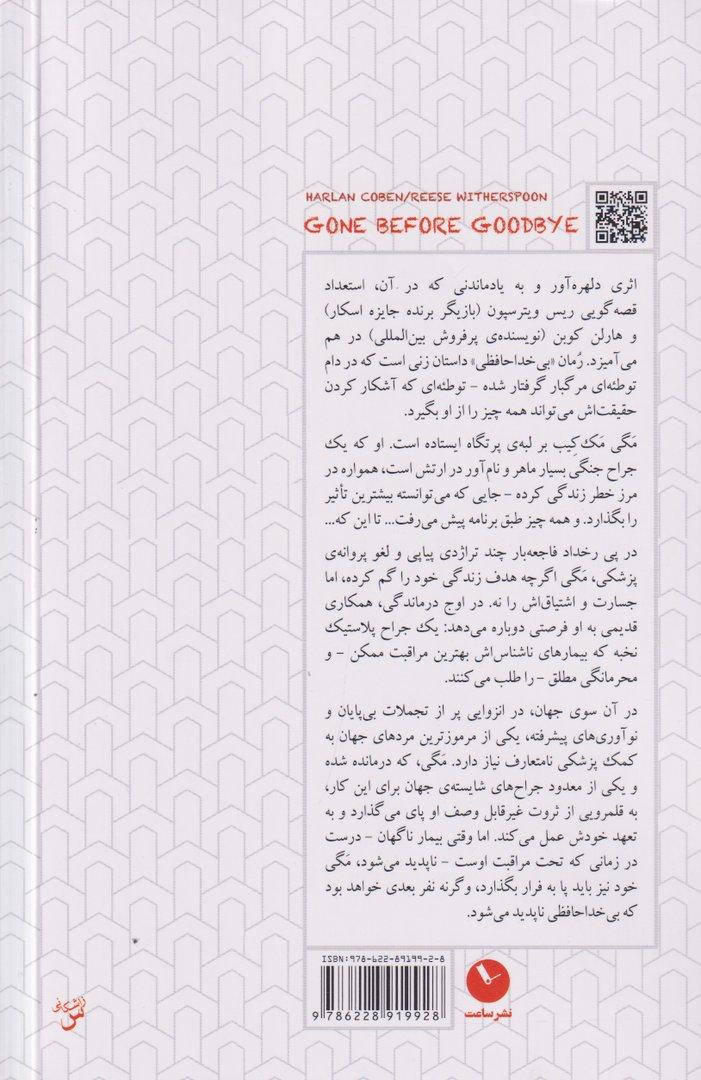 HARLAN COBEN/REESE WITHERSPOON
GONE BEFORE GOODBYE
اثری دلهره‌آور و به یادماندنی که در آن، استعداد
قصه‌گویی ریس ویترسپون (بازیگر برنده جایزه اسکار)
و هارلن کوبن (نویسنده‌ی پرفروش بین‌المللی) در هم
می‌آمیزد. رُمان «بی‌خداحافظی» داستان زنی است که در دام
توطئه‌ای مرگبار گرفتار شده - توطئه‌ای که آشکار کردن
حقیقت‌اش می‌تواند همه چیز را از او بگیرد.
مَگی مَک‌کِیب بر لبه‌ی پرتگاه ایستاده است. او که یک
جراح جنگی بسیار ماهر و نام‌آور در ارتش است، همواره در
مرز خطر زندگی کرده - جایی که می‌توانسته بیشترین تأثیر
را بگذارد. و همه چیز طبق برنامه پیش می‌رفت... تا این که...
در پی رخداد فاجعه‌بار چند تراژدی پیاپی و لغو پروانه‌ی
پزشکی، مَگی اگرچه هدف زندگی خود را گم کرده، اما
جسارت و اشتیاق‌اش را نه. در اوج درماندگی، همکاری
قدیمی به او فرصتی دوباره می‌دهد: یک جراح پلاستیک
نخبه که بیمارهای ناشناس‌اش بهترین مراقبت ممکن - و
محرمانگی مطلق - را طلب می‌کنند.
در آن سوی جهان، در انزوایی پر از تجملات بی‌پایان و
نوآوری‌های پیشرفته، یکی از مرموزترین مردهای جهان به
کمک پزشکی نامتعارف نیاز دارد. مَگی، که درمانده شده
و یکی از معدود جراح‌های شایسته‌ی جهان برای این کار،
به قلمرویی از ثروت غیرقابل وصف او پای می‌گذارد و به
تعهد خودش عمل می‌کند. اما وقتی بیمار ناگهان - درست
در زمانی که تحت مراقبت اوست - ناپدید می‌شود، مَگی
خود نیز باید پا به فرار بگذارد، وگرنه نفر بعدی خواهد بود
که بی‌خداحافظی ناپدید می‌شود.
ISBN: 978-622-89199-2-8
9 786228 919928
نشر ساعت